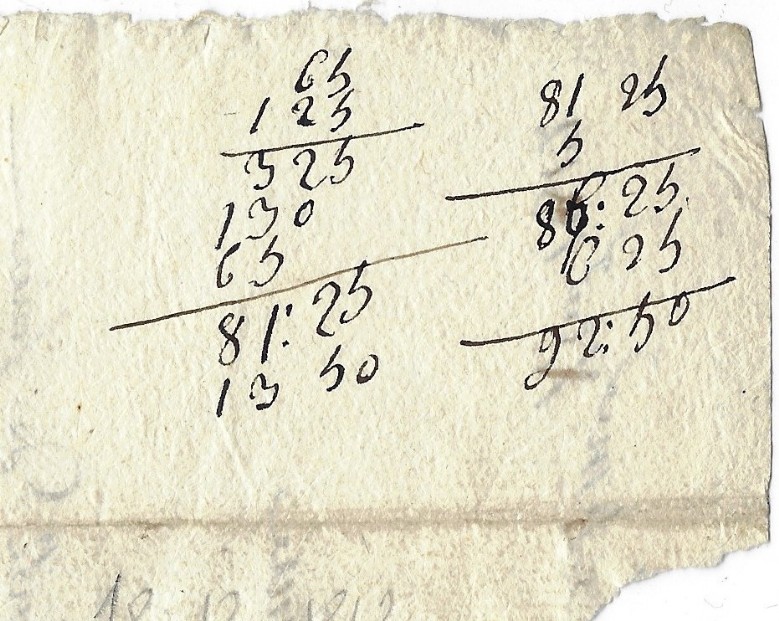 65
1 25
325
130
65
81: 25
13 50
81 25
5
86: 25
6 25
92: 50